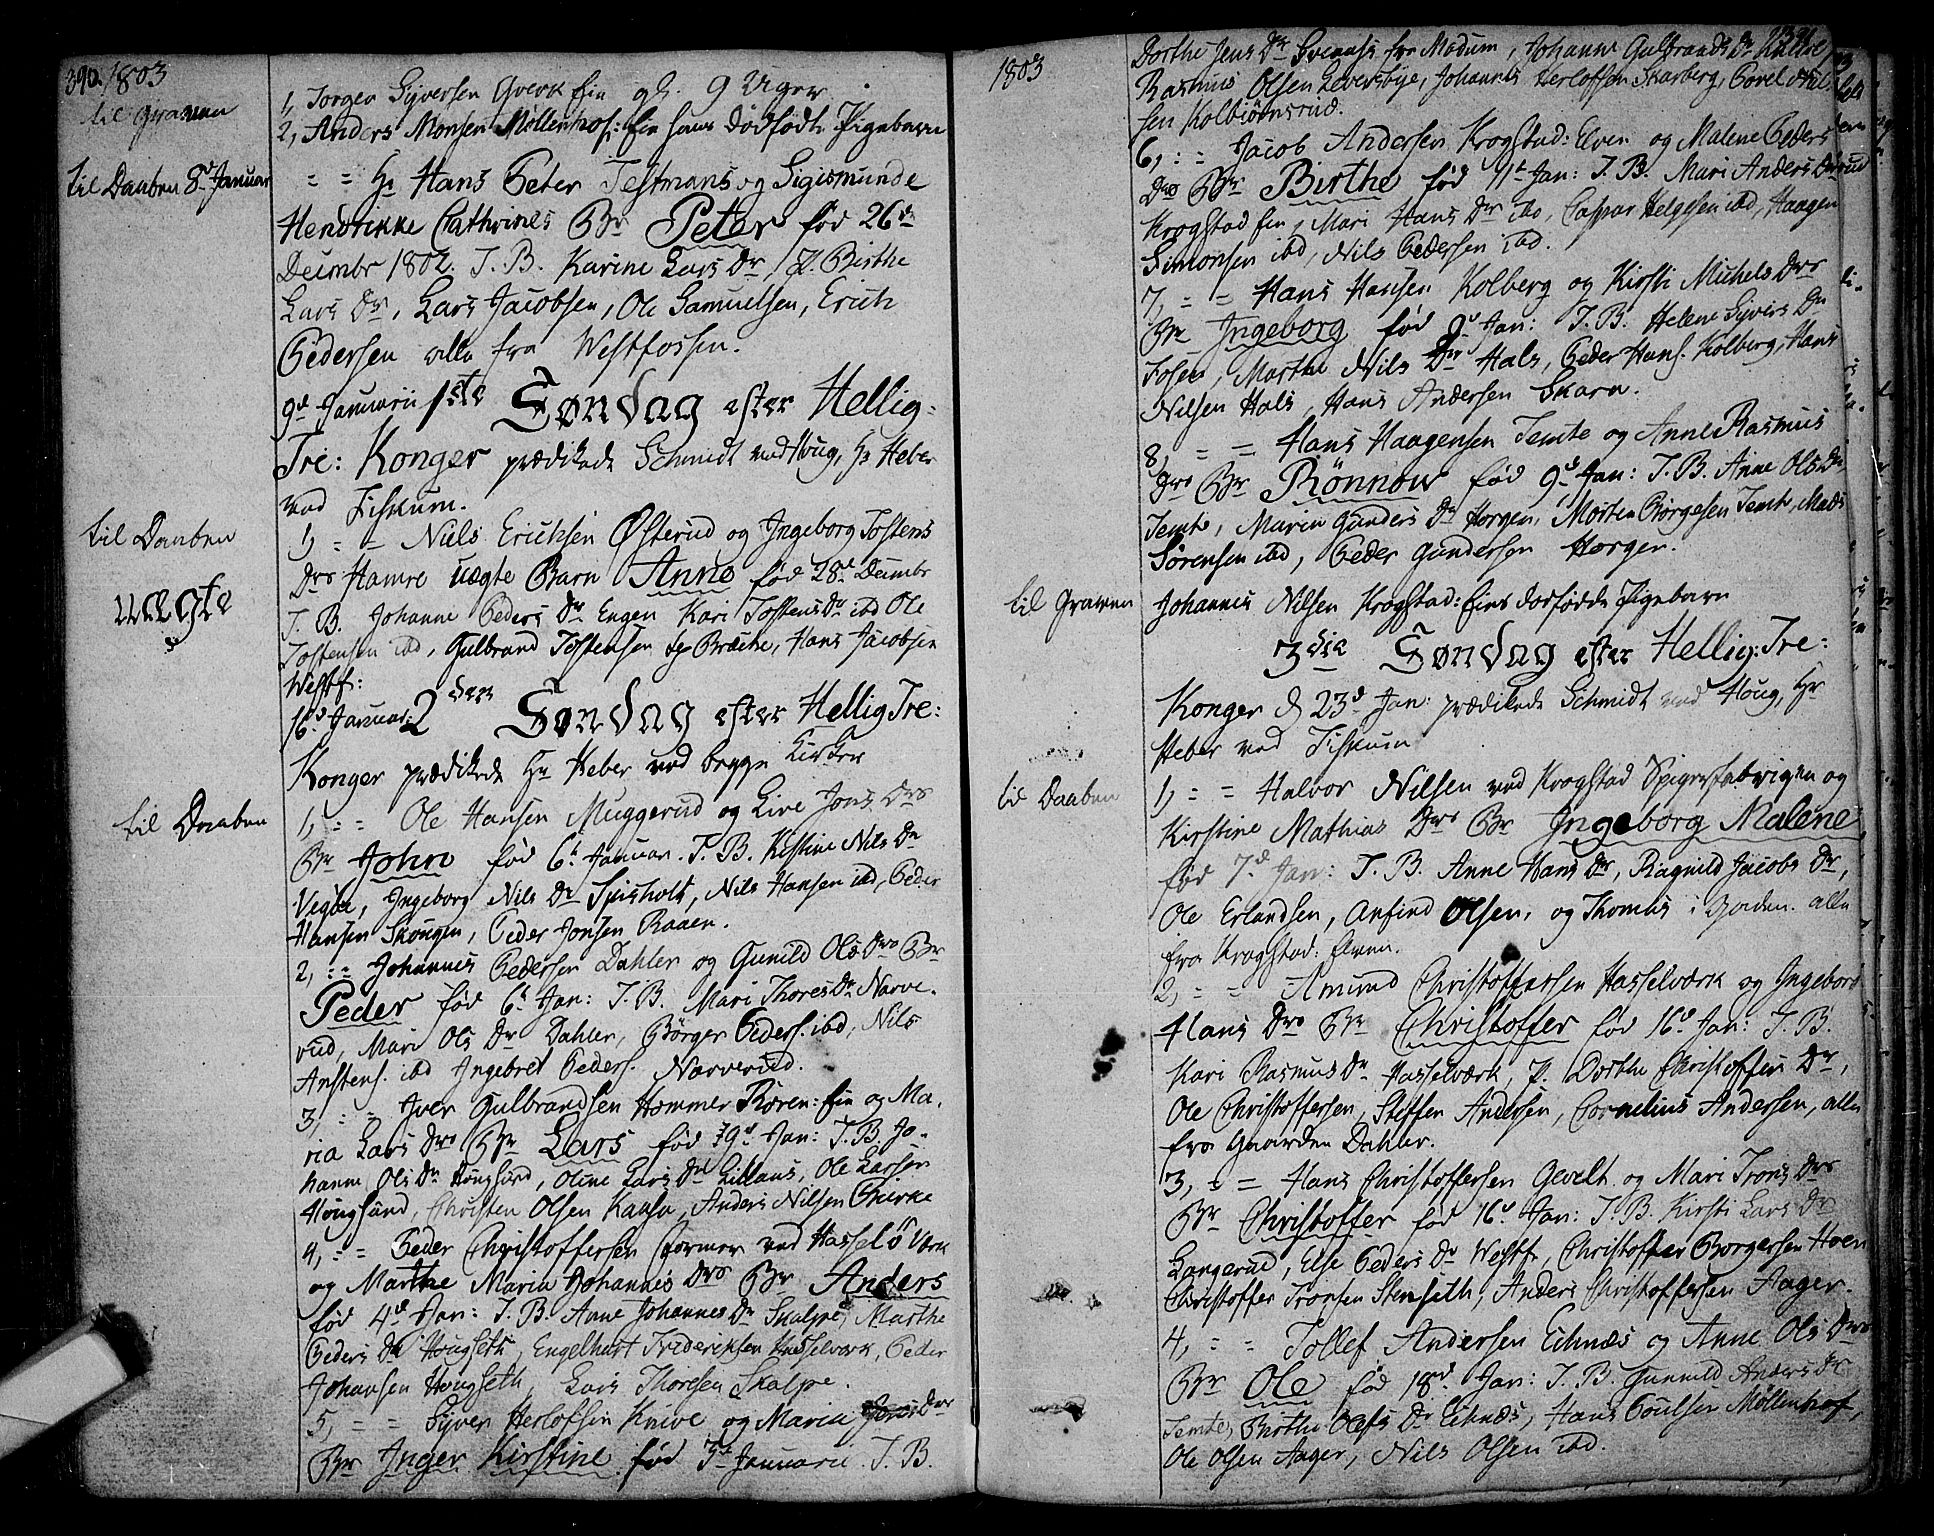 390. 1803
til Graven
1, Jorgen Syversen Gverk Eie gl. 9 Uger
2, Anders Monsen Möllenhof: Eie hans dödfödte Pigebarn
til Daaben 8d Januar
= = Hr Hans Peter Testmans og Sigismunde
Hendrikke Cathrines Br Peter föd 26de
Decembr 1802. T. B. Karine Lars Dr, P. Birthe
Lars Dr, Lars Jacobsen, Ole Samuelsen, Erich
Pedersen alle fra Westfossen.
9d Januarii 1ste Söndag efter Hellig-
Tre: Konger prædikede Schmidt ved Houg, Hr Heber
ved Fiskum.
til Daaben
uægte
1, = = Niels Erichsen Österud og Ingeborg Tostens
Drs Hamre uægte Barn Anne föd 28d Decembr
T. B. Johanne Peders Dr Engen Kari Tostens Dr ibd Ole
Tostensen ibd, Gulbrand Tostensen Bræche, Hans Jacobsen
Westf:
16d Januar: 2den Söndag efter Hellig Tre:
Konger prædikede Hr Heber ved begge Kirker
til Daaben
1, = = Ole Hansen Muggerud og Live Jons Drs
Br John föd 6t Januar. T. B. Kirstine Nils Dr
Vegbe, Ingeborg Nils Dr Spisholt, Nils Hansen ibd, Peder
Hansen Skougen, Peder Jonsen Raaen.
2, = = Johannes Pedersen Dahler og Gunild Ols Drs Br
Peder föd 6t Jan: T. B. Mari Thores Dr Narve-
rud, Mari Ols Dr Dahler, Börger Peders. ibd, Nils
Anstens. ibd Ingebret Peders. Narverud.
3, = = Iver Gulbrandsen Hammer Kören: Eie og Ma-
ria Lars Drs Br Lars föd 9d Jan: T. B. Jo-
hanne Ols Dr Hougsund, Oline Lars Dr Lillaas, Ole Larsen
Hougsund, Christen Olsen Kaasa, Anders Nilsen Bierke
4, = = Peder Christoffersen Former ved Hassel Værk
og Marthe Maria Johannes Drs Br Anders
föd 4d Jan: T. B. Anne Johannes Dr Skalpe, Marthe
Peders Dr Hougseth, Engelhart Friderichsen Hasselværk, Peder
Johansen Hougseth, Lars Thoresen Skalpe.
5, = = Syver Herlofsen Knive og Maria Drs
Br Inger Kirstine föd 7d Januarii. T. B.
1803
Dorthe Jens Dr Svenses fra Modum, Johanne Gulbrands Dr
Rasmus Olsen Leversbye, Johannes Herlofsen Skarberg, Povel
sen Kolbiörnsrud.
6, = = Jacob Andersen Krogstad: Elven og Malene Peders
Drs Br Birthe föd 11t Jan: T. B. Mari Anders Dr
Krogstad Eie, Mari Hans Dr ibd, Caspar Helgesen ibd, Haagen
Simonsen ibd, Nils Pedersen ibd.
7, = = Hans Hansen Kolberg og Kirsti Michels Drs
Br Ingeborg föd 9d Jan: T. B. Helene Syvers Dr
Fosen, Marthe Nils Dr Hals, Peder Hans. Kolberg, Hans
Nilsen Hals, Hans Andersen Skara.
8, = = Hans Haagensen Temte og Anne Rasmus
Drs Br Rönnow föd 9d Jan: T. B. Anne Ols Dr
Temte, Maria Gunders Dr Horgen, Morten Börgesen Temte, Mads
Sörensen ibd, Peder Gundersen Horgen.
til Graven
Johannes Nilsen Krogstad: Eies dödfödde Pigebarn
3die Söndag efter Hellig: Tre:
Konger d 23d Jan: prædikede Schmidt ved Houg, Hr
Heber ved Fiskum
til Daaben
1, = = Halvor Nilsen ved Krogstad Spigerfabriqen og
Kirstine Mathias Drs Br Ingeborg Malene
föd 7d Jan: T. B. Anne Hans Dr, Ragnild Jacobs Dr,
Ole Erlandsen, Anfind Olsen, og Thomas i Gorden alle
fra Krogstad: Elven.
2, = = Amund Christoffersen Hasselværk og Ingebor
Hans Drs Br Christoffer föd 16d Jan: T. B.
Kari Rasmus Dr Hasselværk, P. Dorthe Christoffer Dr,
Ole Christoffersen, Steffen Andersen, Cornelius Andersen, alle
fra Gaarden Dahler.
3, = = Hans Christoffersen Gevelt og Mari Trons Drs
Br Christoffer föd 16d Jan: T. B. Kirsti Lars Dr
Langerud, Else Peders Dr Westf, Christoffer Borgersen Hoen
Christoffer Tronsen Stenseth, Anders Christoffersen Aager.
4, = = Tollef Andersen Eknæs og Anne Ols Drs
Br Ole föd 18d Jan: T. B. Gunnild Anders Dr
Temte, Birthe Olefs Dr Eknæs, Hans Poulsen Möllenhof,
Ole Olsen Aager, Nils Olsen ibd.